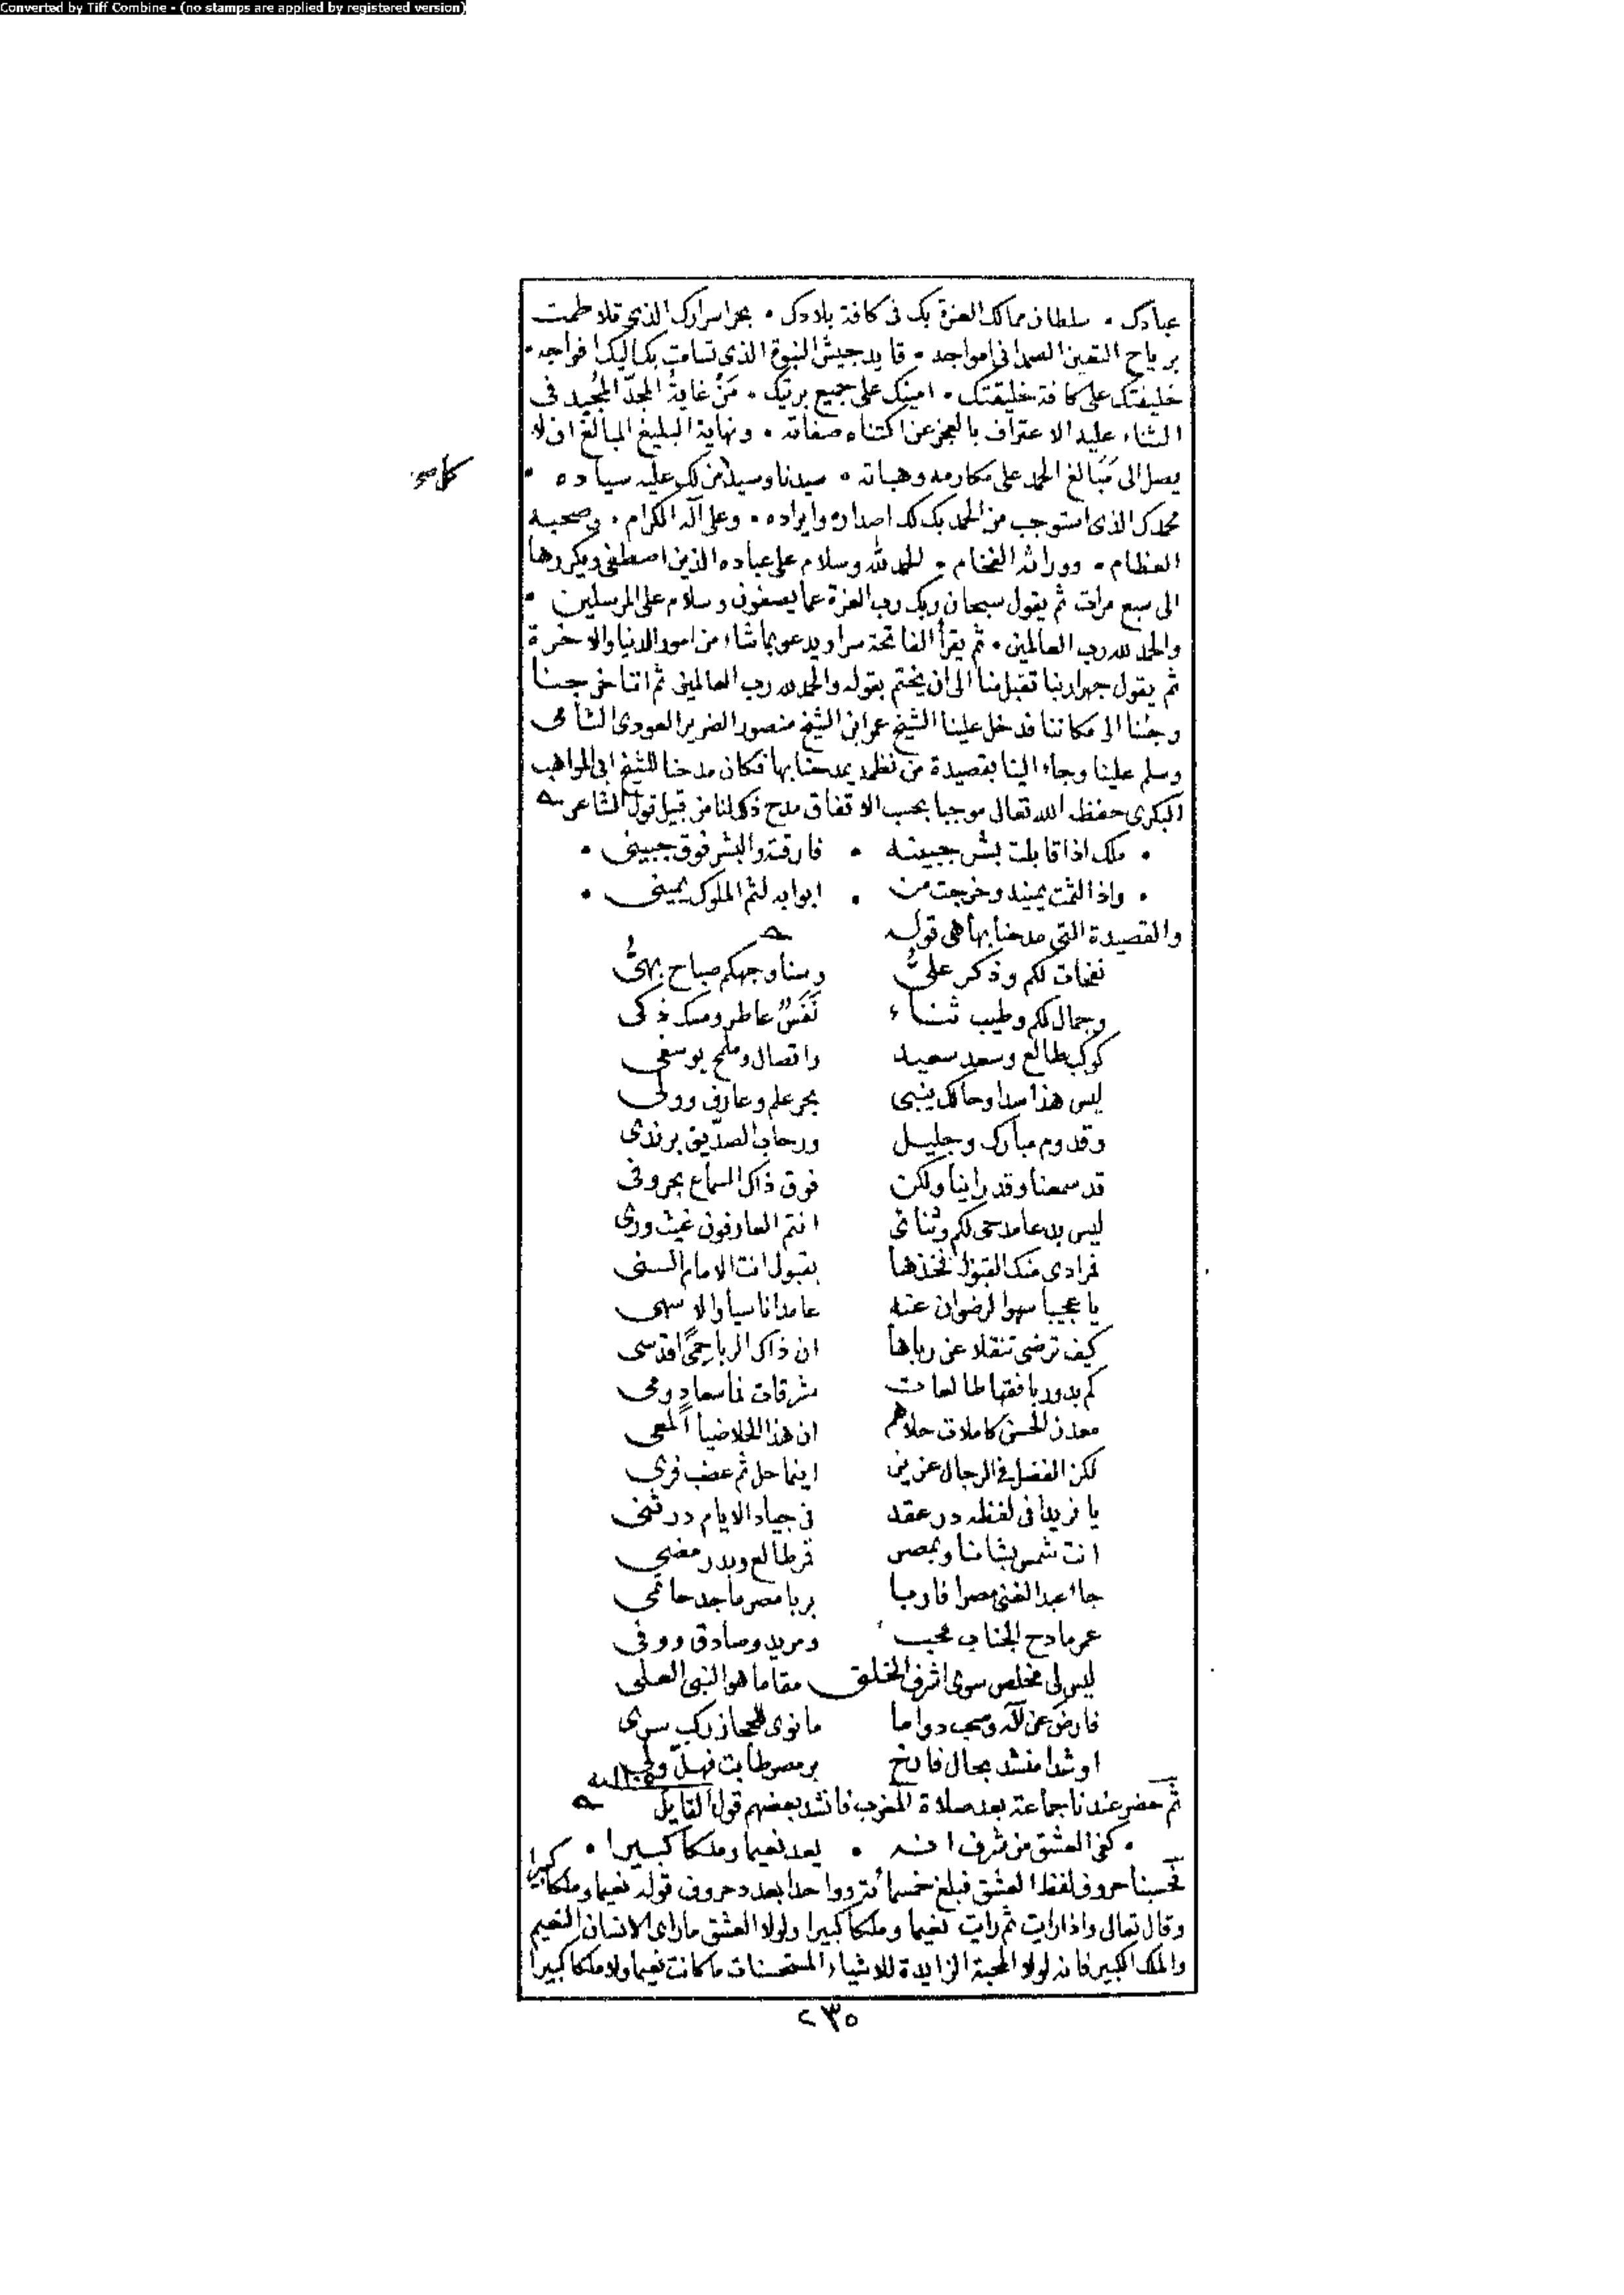 Converted by Tiff Combine - (no stamps are applied by registered version)
عبادك • سلطان ممالك العزة بك في كافة بلادك • بحر اسرارك الذي تلاطمت
برياح التعين الصمداني امواجه • قايد جيش النبوة الذي تسامت بك اليك افواجه •
خليفتك على كافة خليقتك • امينك على جميع بريتك • مَنْ غاية المجدّ المُجيد في
الثناء عليه الاعتراف بالعجز عن اكتناه صفاته • ونهاية البليغ المبالغ ان لا
يصل الى مَبَالغ الحمد على مكارمه وهباته • سيدنا وسيد من لك عليه سياده •
كل صح
محمدك الذي استوجب من الحمد بك لك اصداره وايراده • وعلى آله الكرام • وصحبه
العظام • ووراثه الفخام • الحمد لله وسلام على عباده الذين اصطفى ويكررها
الى سبع مرات ثم يقول سبحان ربك رب العزة عما يصفون وسلام على المرسلين •
والحمد لله رب العالمين • ثم يقرأ الفاتحة سرا ويدعو بما شاء من امور الدنيا والاخرة
ثم يقول جهرا ربنا تقبل منا الى ان يختم بقوله والحمد لله رب العالمين ثم اننا خرجنا
وجئنا الى مكاننا فدخل علينا الشيخ عمر ابن الشيخ منصور الضرير العودي الشامي
وسلم علينا وجاء الينا بقصيدة من نظمه يمدحنا بها فكان مدحنا للشيخ ابي المواهب
البكري حفظه الله تعالى موجبا بحسب الاتفاق مدح ذلك لنا من قبيل قول الشاعر
• ملك اذا قابلت بشر جبينه • فارقته والبشر فوق جبيني •
• واذا لثمت يمينه وخرجت من • ابوابه لثم الملوك يميني •
والقصيدة التي مدحنا بها هي قوله
نفحات لكم وذكر عليُّ وسنا وجهكم صباح بهيُّ
وجمال لكم وطيب ثناء نَفَسٌ عاطر ومسك ذكي
كوكب طالع وسعد سعيد واتصال وملح يوسفي
ليس هذا سدا وحالك ينبي بحر علم وعارف وولي
وقدوم مبارك وجليل ورحاب الصدّيق برندي
قد سمعنا وقد راينا ولكن فوق ذاك السماع بحر وفي
ليس بدعا مدحي لكم وثنائي انتم العارفون غيث وري
فمرادي منك القبول فخذها بقبول انت الامام السني
يا عجيبا سهوا لرضوان عنه عامدا ناسيا والا سهي
كيف ترضى تنقلا عن رباها ان ذاك الربا حِمًى اقدسي
كم بدور بافقها طالعات مشرقات فاسعاد ومي
معدن الحسن كاملات حلاهم ان هذا الحلا ضيا المعي
لكن الفضل في الرجال عزيز اينما حل ثم عضب فري
يا فريدا في لفظه در عقد في جياد الايام در ثني
انت شمس بشامنا وبمصر قمر طالع وبدر مضي
جاء عبد الغني مصرا فاربا بربا مصر ماجد حاتمي
عمر مادح الجناب محب ومريد وصادق ووفي
ليس لي مخلص سوى اشرف الخلق مقاما هو النبي العلي
فارض عن آله وصحب دواما ما نوى للحجاز ركب سري
او شدا منشد بحال فارخ بر مصر طابت فهلّ ولي
ثم حضر عندنا جماعة بعد صلاة المغرب فانشد بعضهم قول القايل
• كفى العشق من شرف انه • يعد نعيما وملكا كبيرا •
فحسبنا حروف لفظ العشق فبلغ خمسمائة وواحدا بعدد حروف قوله نعيما وملكا كبيرا
وقال تعالى واذا رايت ثم رايت نعيما وملكا كبيرا ولولا العشق ما راى الانسان النعيم
والملك الكبير فانه لولا المحبة الزايدة للاشياء المستحسنات ما كانت نعيما ولا ملكا كبيرا
٢٣٥